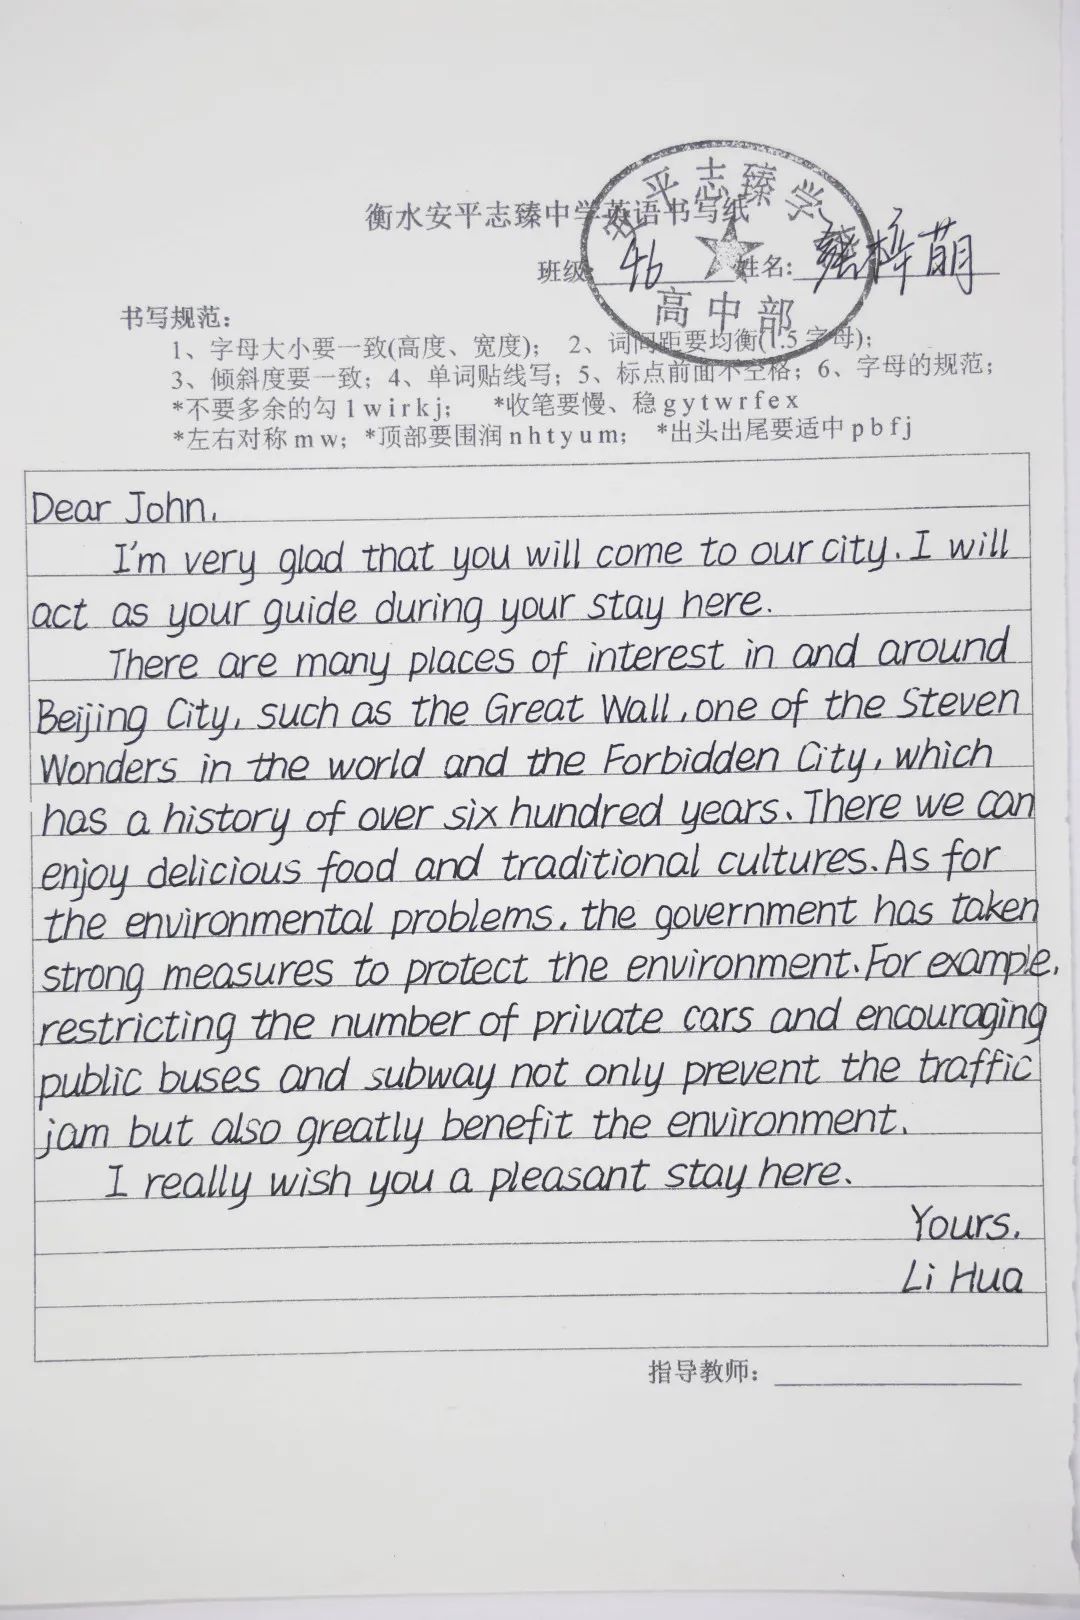 衡水安平志臻中学英语书写纸
安平志臻学
高中部
班级: 46 姓名: 梓萌
书写规范：
1、字母大小要一致(高度、宽度)； 2、词间距要均衡(1.5字母)；
3、倾斜度要一致；4、单词贴线写；5、标点前面不空格；6、字母的规范；
*不要多余的勾 l w i r k j； *收笔要慢、稳 g y t w r f e x
*左右对称 m w；*顶部要围润 n h t y u m； *出头出尾要适中 p b f j
Dear John,
I'm very glad that you will come to our city. I will
act as your guide during your stay here.
There are many places of interest in and around
Beijing City, such as the Great Wall, one of the Steven
Wonders in the world and the Forbidden City, which
has a history of over six hundred years. There we can
enjoy delicious food and traditional cultures. As for
the environmental problems, the government has taken
strong measures to protect the environment. For example,
restricting the number of private cars and encouraging
public buses and subway not only prevent the traffic
jam but also greatly benefit the environment.
I really wish you a pleasant stay here.
Yours,
Li Hua
指导教师：